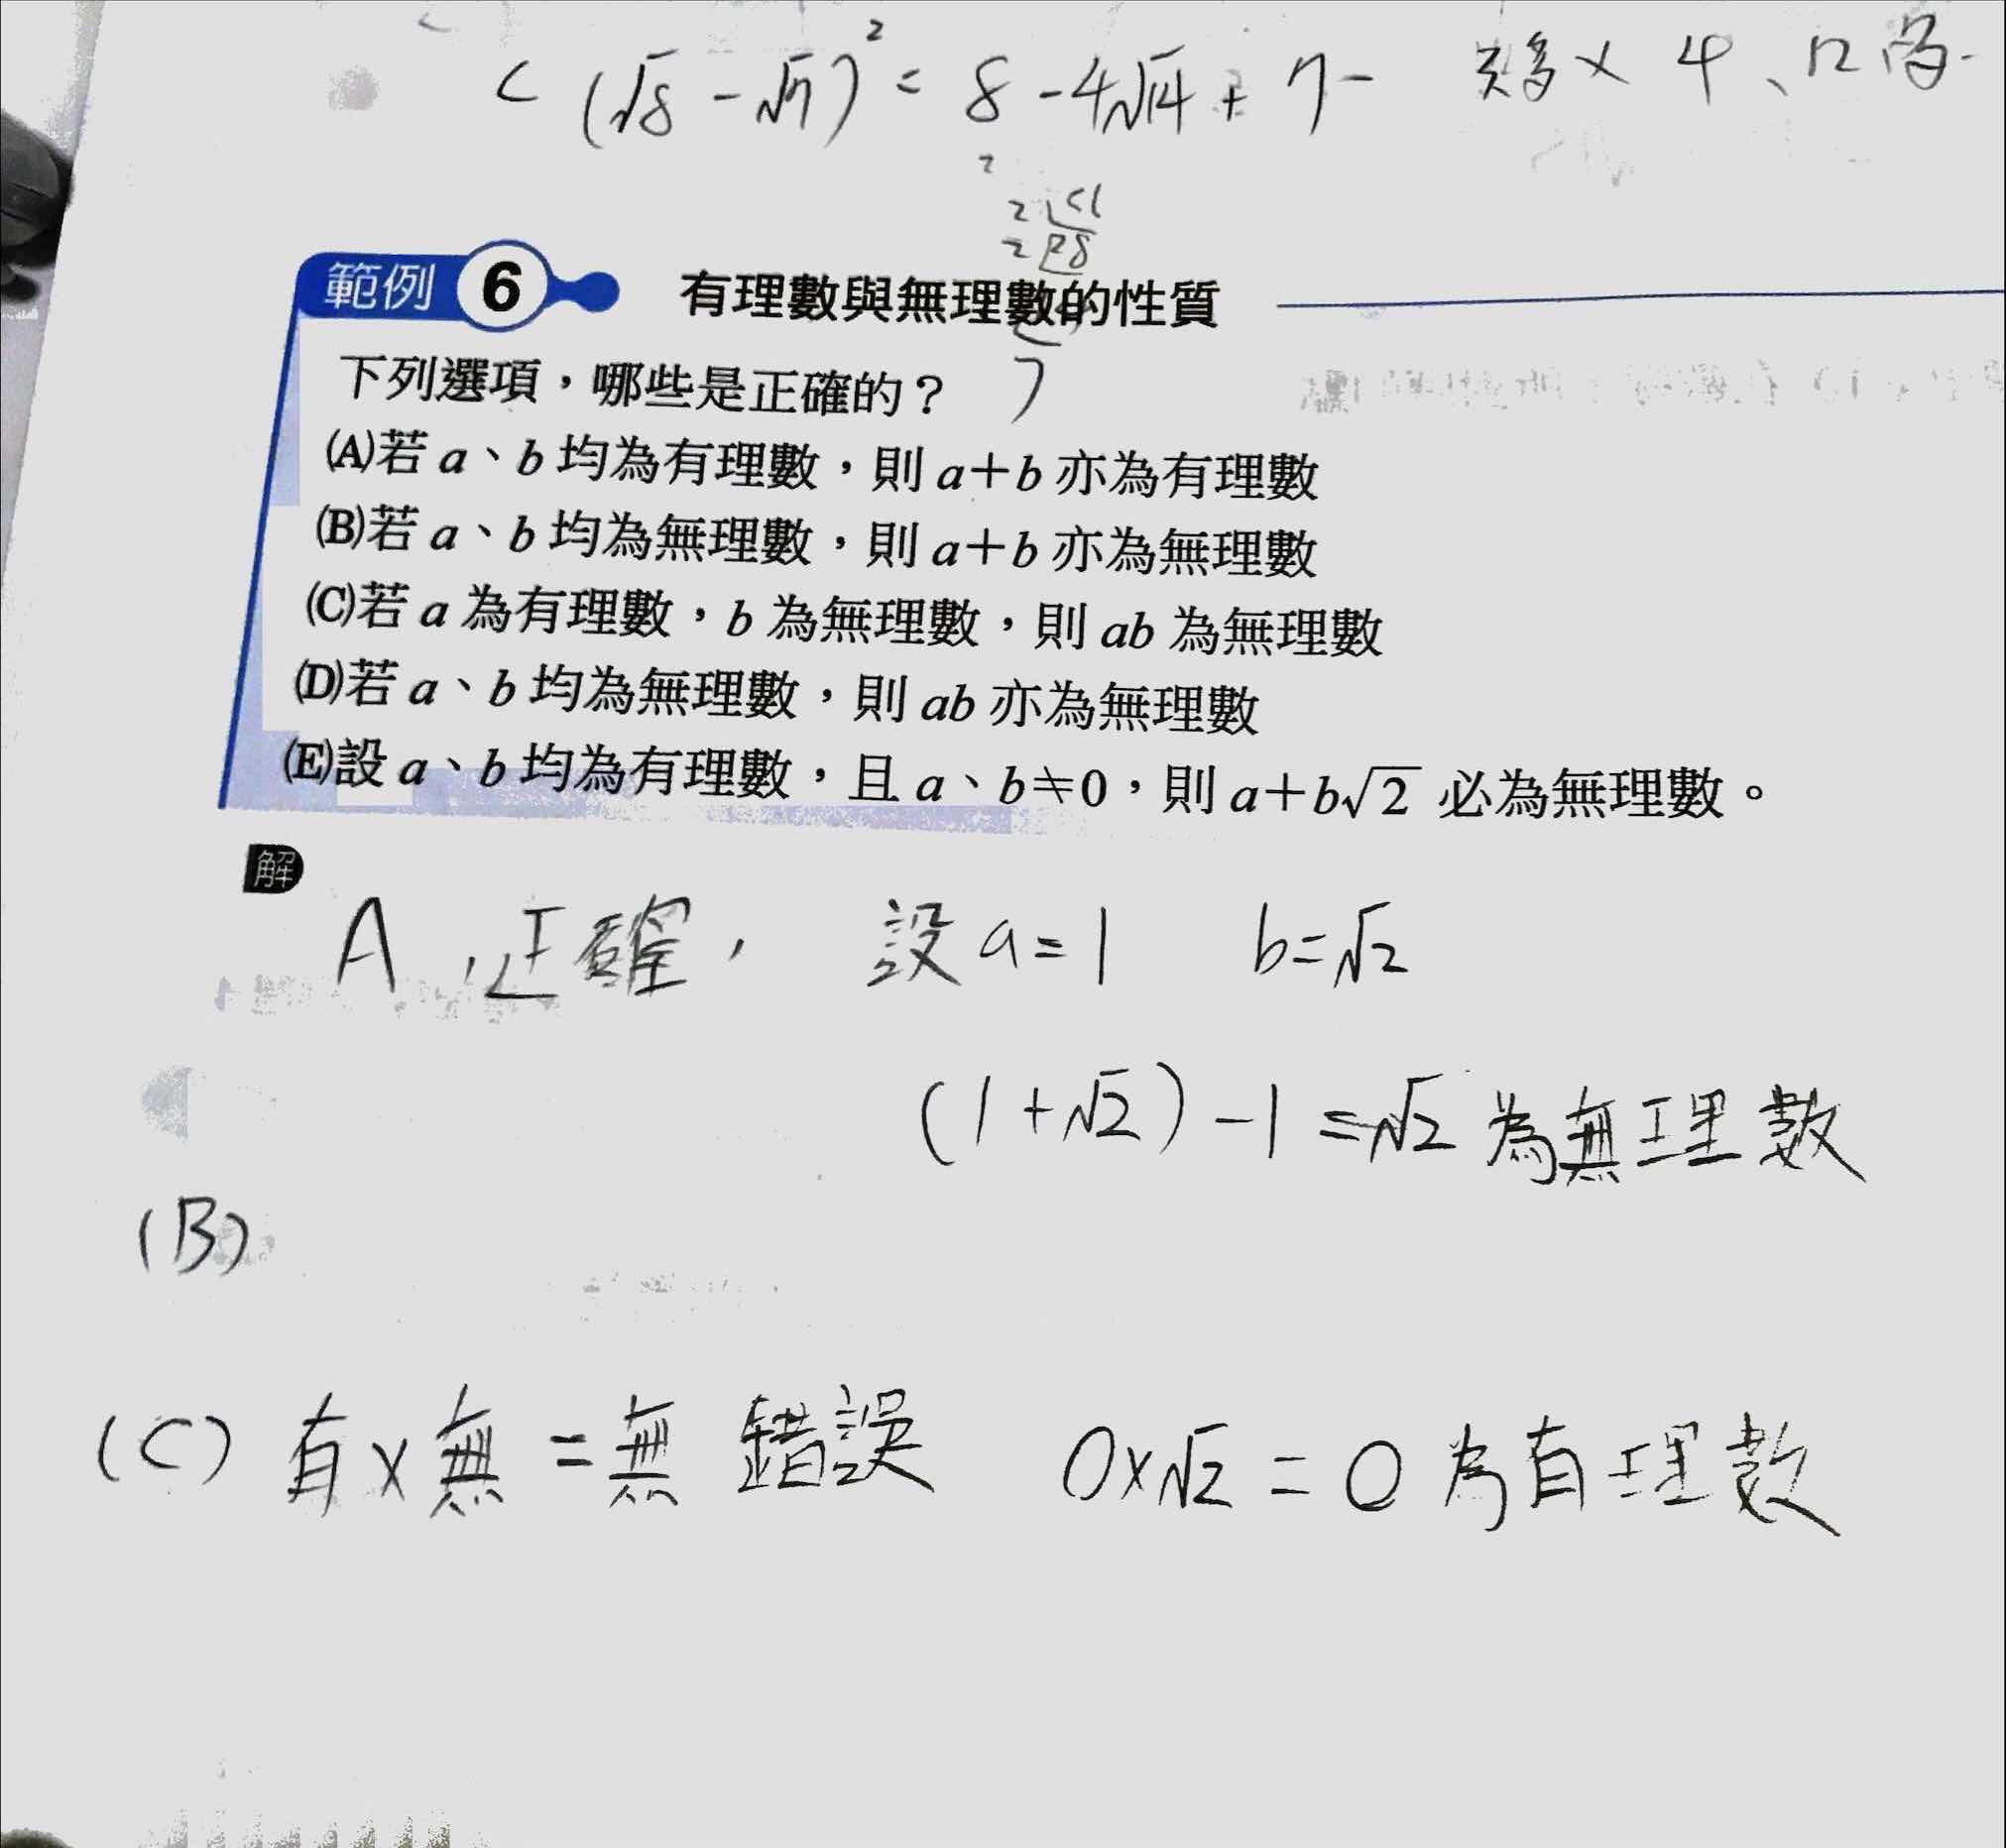 < (√8 - √7)² = 8 - 4√14 + 7 -
範例 6 有理數與無理數的性質
下列選項，哪些是正確的？
(A)若 a、b 均為有理數，則 a＋b 亦為有理數
(B)若 a、b 均為無理數，則 a＋b 亦為無理數
(C)若 a 為有理數，b 為無理數，則 ab 為無理數
(D)若 a、b 均為無理數，則 ab 亦為無理數
(E)設 a、b 均為有理數，且 a、b≠0，則 a＋b√2 必為無理數。
解
A，正確， 設 a=1 b=√2
(1+√2)-1=√2 為無理數
(B)
(C) 有×無=無 錯誤 0×√2=0 為有理數